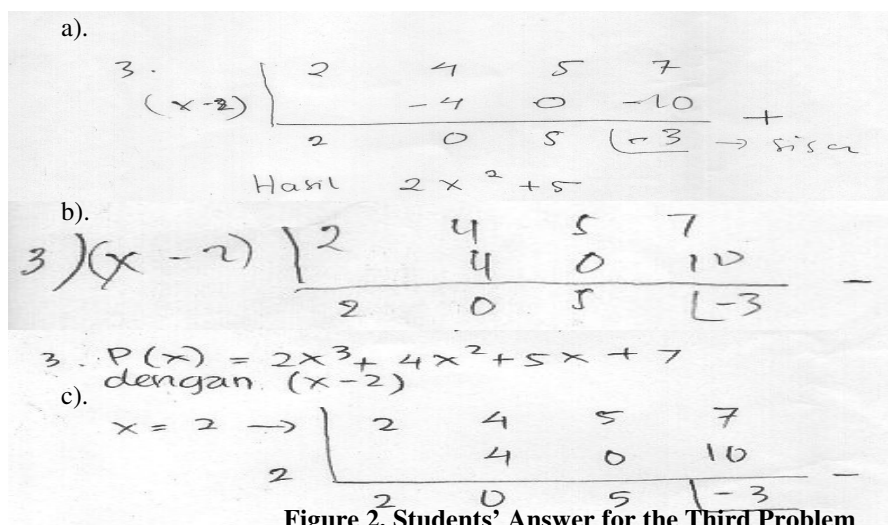 a).
3. 2 4 5 7
(x-2) -4 0 -10 +
2 0 5 -3 → sisa
Hasil 2x² + 5
b).
3) (x - 2) 2 4 5 7
4 0 10 -
2 0 5 -3
3. P(x) = 2x³ + 4x² + 5x + 7
dengan (x-2)
c).
x = 2 → 2 4 5 7
2 4 0 10 -
2 0 5 -3
Figure 2. Students' Answer for the Third Problem